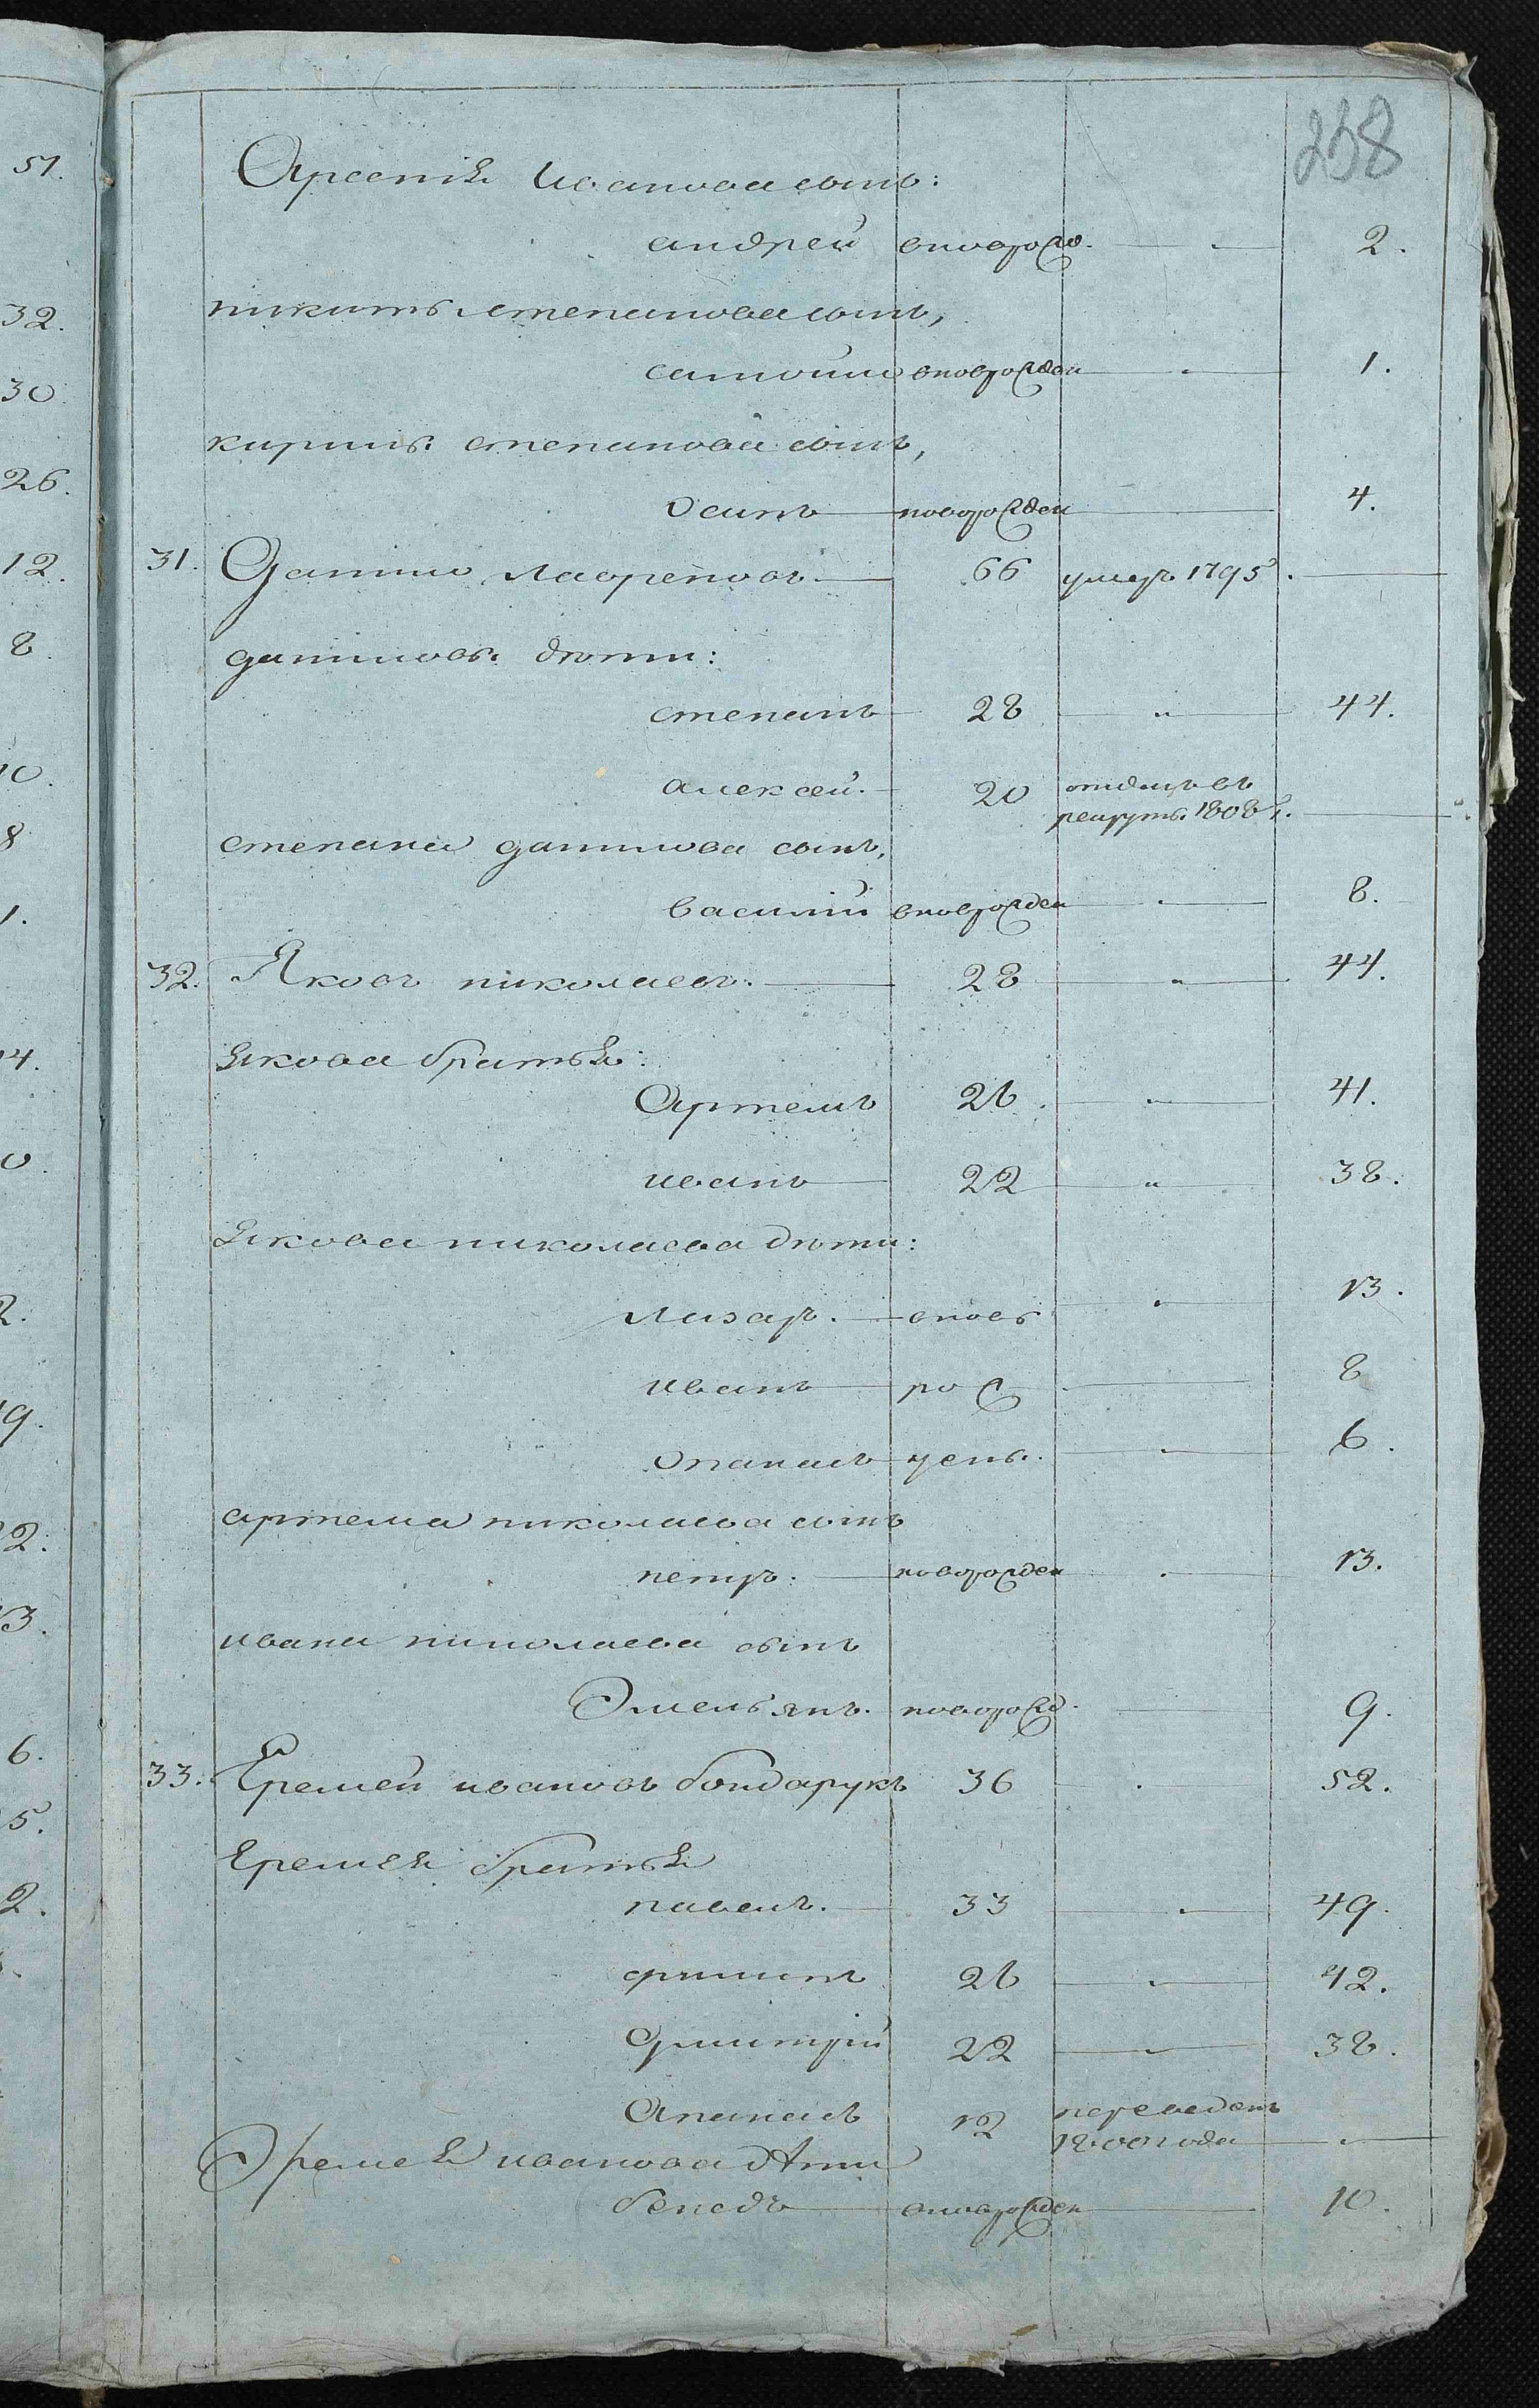 238
Арсенія Иванова сынъ:
андрей вноврожд. 2.
никиты степанова сынъ,
самойло вноврожден 1.
кирилы степанова сынъ,
Осипъ новорожден 4.
31. Данило лавреновъ 66 умеръ 1795.
даниловы дѣти:
степанъ 28 " 44.
алексей. 20 отданъ въ
рекруты 1808 г.
степана данилова сынъ,
василій вноврожден 8.
32. Яковъ николаевъ. 28 " 44.
якова братья:
Артемъ 26. " 41.
иванъ 22 " 38.
якова николаева дѣти:
Лазаръ. внов 13.
иванъ рож 8
Опанасъ дены. 6.
артема николаева сынъ
петръ. новорожден 13.
ивана николаева сынъ
Эмельянъ. новорожд. 9.
33. Еремей ивановъ бондарукъ 36 52.
Еремея братья
павелъ. 33 " 49.
филипъ 26 " 42.
Дмитрій 22 " 38.
Апанасъ 12 переведенъ
1800 года
Эремея иванова дѣти
бенедъ вноврожден 10.
51.
32.
30.
26.
12.
8.
10.
8
1.
4.
0.
2.
9.
2.
3.
6.
5.
2.